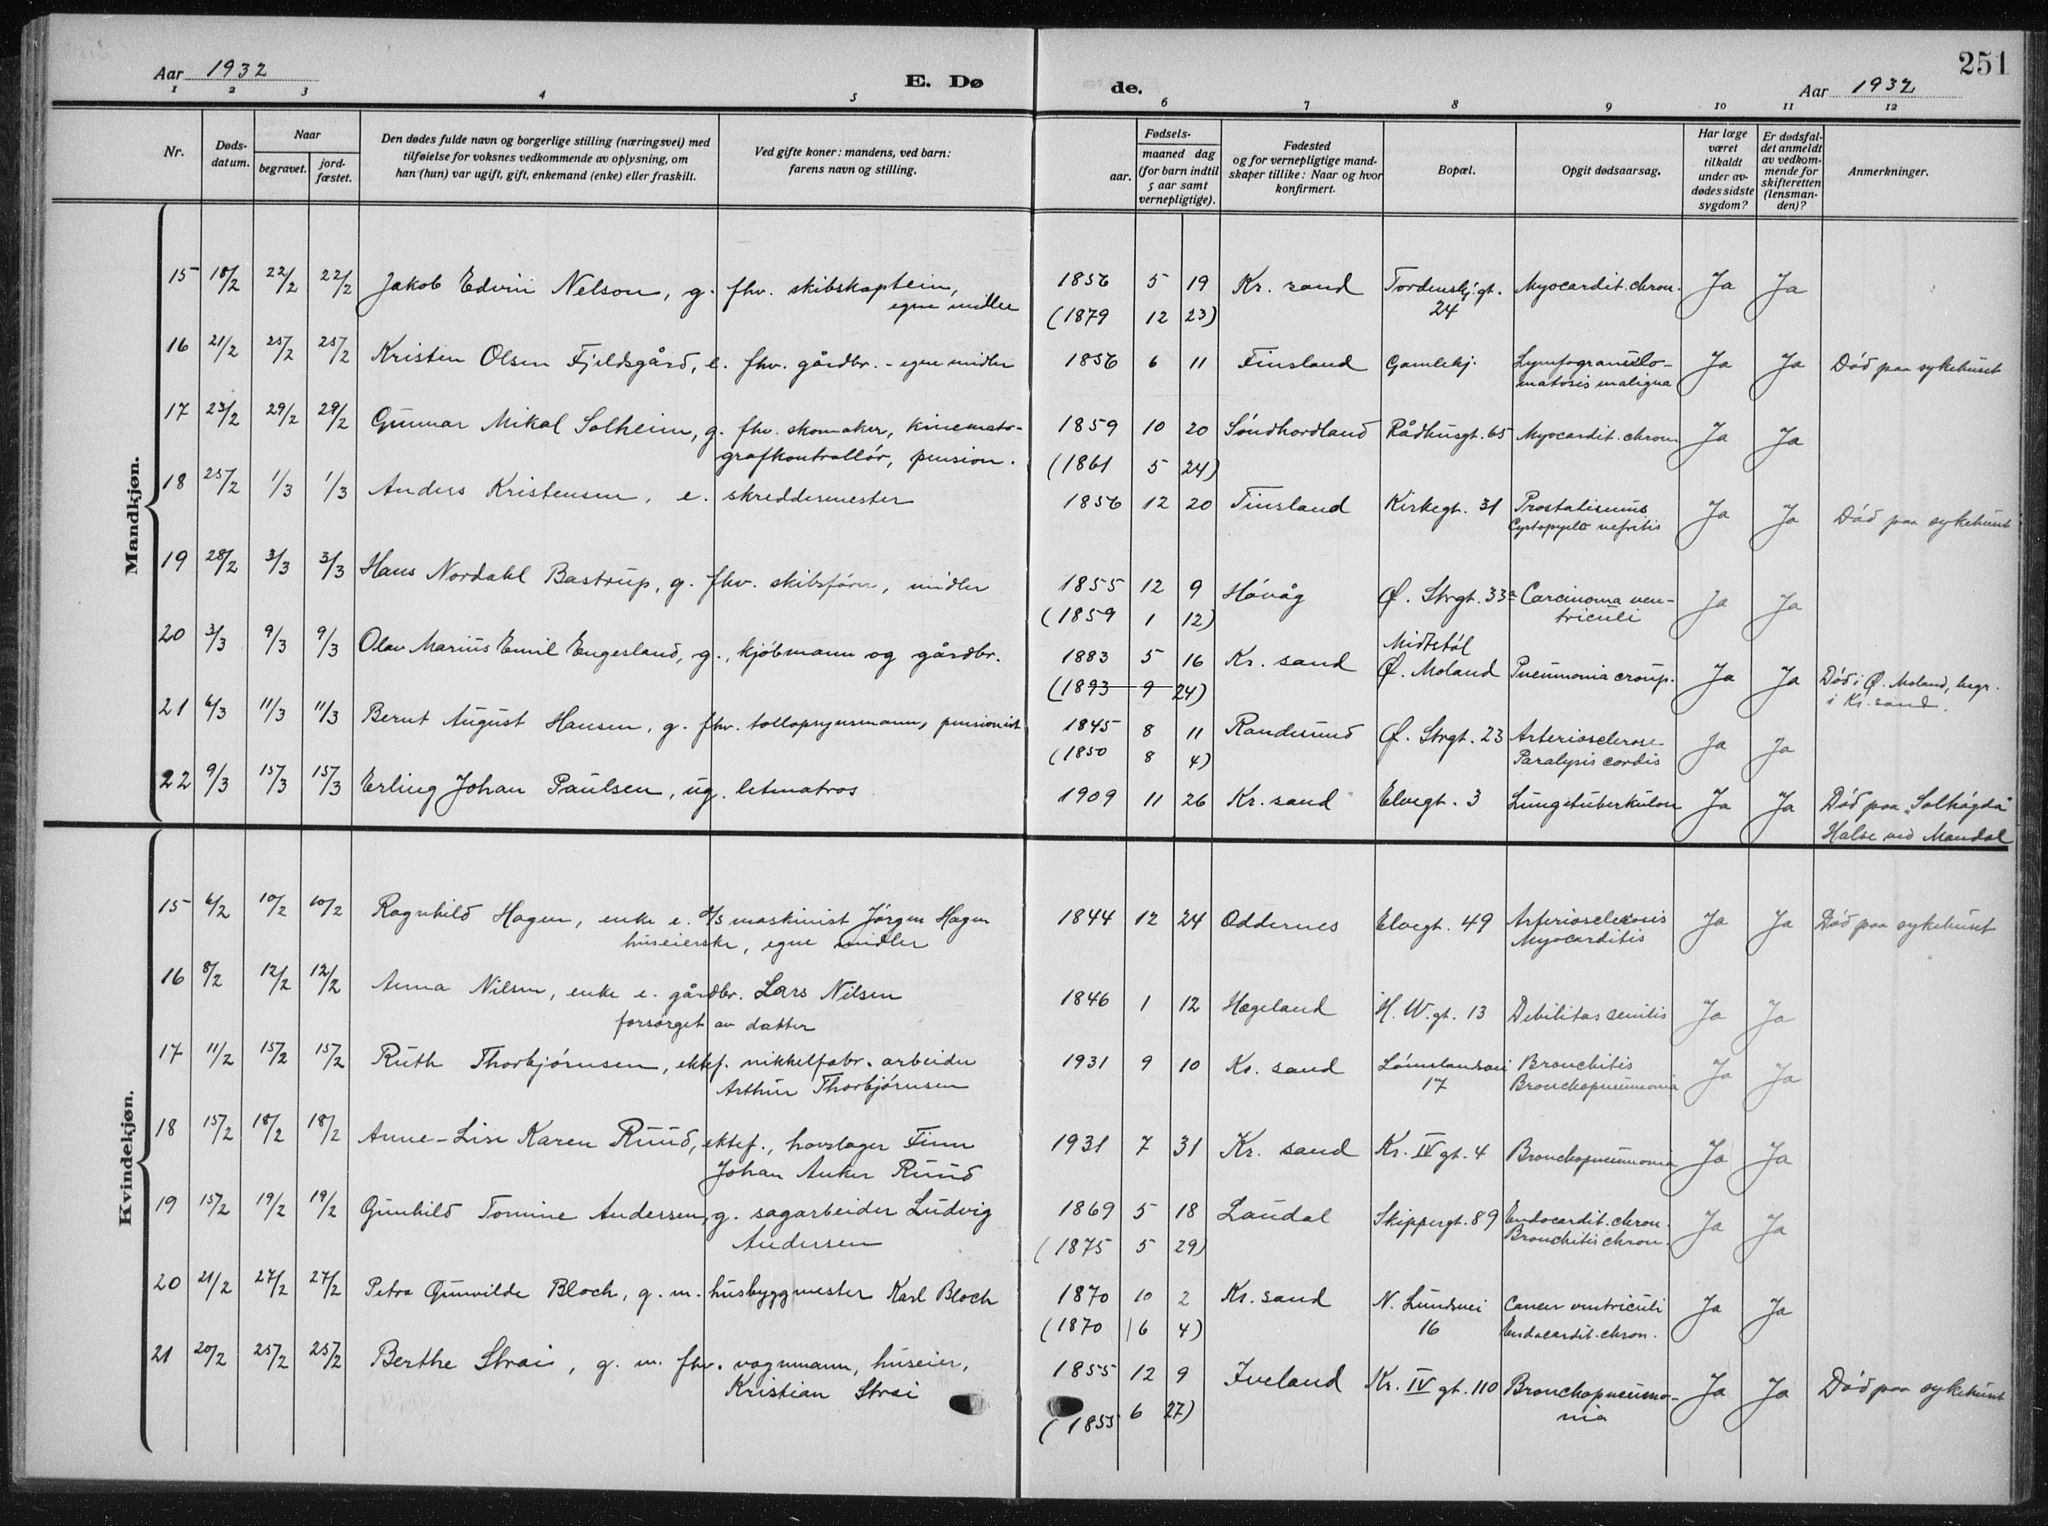 251
Aar 1932 E. Dø de. Aar 1932
1 2 3 4 5 6 7 8 9 10 11 12
Nr. Døds-datum. Naar begravet. jord-fæstet. Den dødes fulde navn og borgerlige stilling (næringsvei) med tilføielse for voksnes vedkommende av oplysning, om han (hun) var ugift, gift, enkemand (enke) eller fraskilt. Ved gifte koner: mandens, ved barn: farens navn og stilling. Fødsels- aar. maaned dag (for barn indtil 5 aar samt vernepligtige). Fødested og for vernepligtige mand-skaper tillike: Naar og hvor konfirmert. Bopæl. Opgit dødsaarsag. Har læge været tilkaldt under av-dødes sidste sygdom? Er dødsfal-det anmeldt av vedkom-mende for skifteretten (lensman-den)? Anmerkninger.
Mandkjøn.
15 18/2 22/2 22/2 Jakob Edvin Nelson, g. fhv. skibskaptein, 1856 5 19 Kr. sand Tordenskj. gt. Myocardit. chron. Ja Ja
egne midler (1879 12 23) 24
16 21/2 25/2 25/2 Kristen Olsen Fjeldsgård, e. fhv. gårdbr. - egne midler 1856 6 11 Finsland Gamlekj. Lymfogranulo- Ja Ja Død paa sykehuset
matosis maligna
17 23/2 29/2 29/2 Gunnar Mikal Solheim, g. fhv. skomaker, kinemato- 1859 10 20 Søndhordland Rådhusgt. 65 Myocardit. chron Ja Ja
grafkontrollør, pension. (1861 5 24)
18 25/2 1/3 1/3 Anders Kristensen, e. skreddermester 1856 12 20 Finsland Kirkegt. 31 Prostatismus Ja Ja Død paa sykehuset
Cystopyelo nefritis
19 28/2 3/3 3/3 Hans Nordahl Bastrup, g. fhv. skibsfører, midler 1855 12 9 Høvåg Ø. Strgt. 33a Carcinoma ven- Ja Ja
(1859 1 12) triculi
20 3/3 9/3 9/3 Olav Marius Emil Engesland, g., kjøbmann og gårdbr. 1883 5 16 Kr. sand Midtstøl
Ø. Moland Pneumonia croup. Ja Ja Død i Ø. Moland, begr.
(1893 9 24) i Kr. sand.
21 6/3 11/3 11/3 Bernt August Hansen, g. fhv. tollopsynsmann, pensionist 1845 8 11 Randesund Ø. Strgt. 23 Arteriosclerose Ja Ja
(1850 8 4) Paralysis cordis
22 9/3 15/3 15/3 Erling Johan Paulsen, ug. letmatros 1909 11 26 Kr. sand Elvegt. 3 Lungetuberkulon Ja Ja Død paa "Solhøgda"
Halse ved Mandal
Kvindekjøn.
15 6/2 10/2 10/2 Ragnhild Hagen, enke e. d/s maskinist Jørgen Hagen 1844 12 24 Oddernes Elvegt. 49 Arteriosclerosis Ja Ja Død paa sykehuset
huseierske, egne midler Myocarditis
16 8/2 12/2 12/2 Anna Nilsen, enke e. gårdbr. Lars Nilsen 1846 1 12 Hægeland H. W. gt. 13 Debilitas senilis Ja Ja
forsørget av datter
17 11/2 15/2 15/2 Ruth Thorbjørnsen, ektef. nikkelfabr. arbeider 1931 9 10 Kr. sand Lømslandsvei Bronchitis Ja Ja
Arthur Thorbjørnsen 17 Bronchopneumonia
18 15/2 18/2 18/2 Anne-Lise Karen Ruud, ektef., hovslager Finn 1931 7 31 Kr. sand Kr. IV gt. 4 Bronchopneumonia Ja Ja
Johan Anker Ruud
19 15/2 19/2 19/2 Gunhild Tomine Andersen, g. sagarbeider Ludvig 1869 5 18 Laudal Skippergt. 89 Endocardit. chron. Ja Ja
Andersen (1875 5 29) Bronchitis chron.
20 21/2 27/2 27/2 Petra Gunvilde Bloch, g. m. husbyggmester Karl Bloch 1870 10 2 Kr. sand N. Lundsvei Cancer ventriculi Ja Ja
(1870 6 4) 16 Endocardit. chron.
21 20/2 25/2 25/2 Berthe Strai, g. m. fhv. vognmann, huseier, 1855 12 9 Iveland Kr. IV gt. 110 Bronchopneumo- Ja Ja Død paa sykehuset
Kristian Strai (1855 6 27) nia